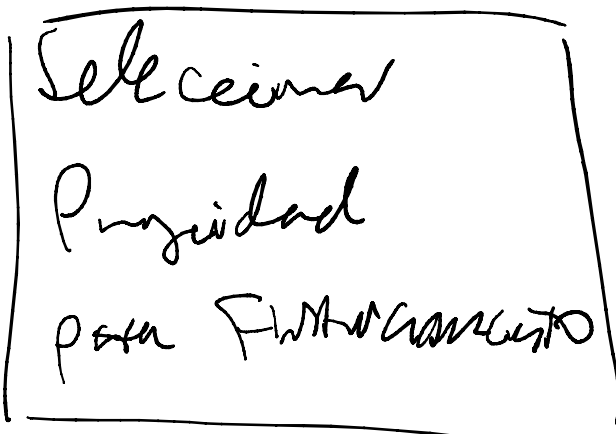 Seleccionar
Propiedad
para FINANCIAMIENTO